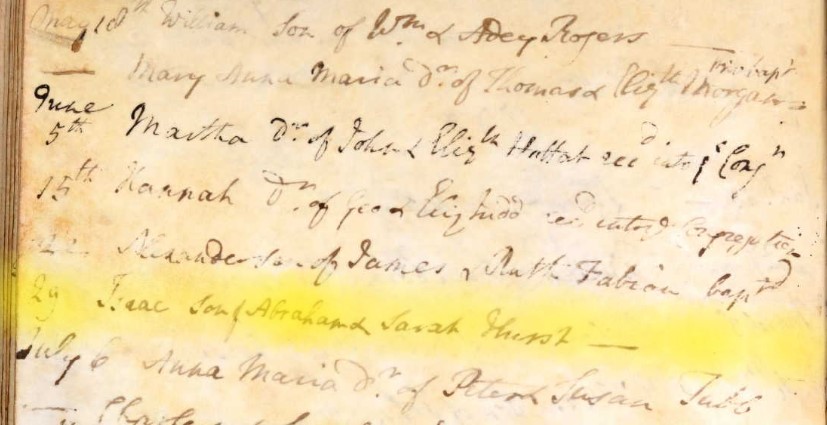 May 18th William Son of Wm & Adey Rogers
— Mary Anna Maria Dr. of Thomas & Elizth Morgan priv bapt
June
5th Martha Dr. of John & Elizth Huttat recd into ye Congn
15th Hannah Dr. of Geo & Eliz recd into ye Congregation
Alexander son of James & Ruth Fabian baptd
29 Isaac son of Abraham & Sarah Hurst —
July 6 Anna Maria Dr. of Peter & Susan Tubb
— Charles